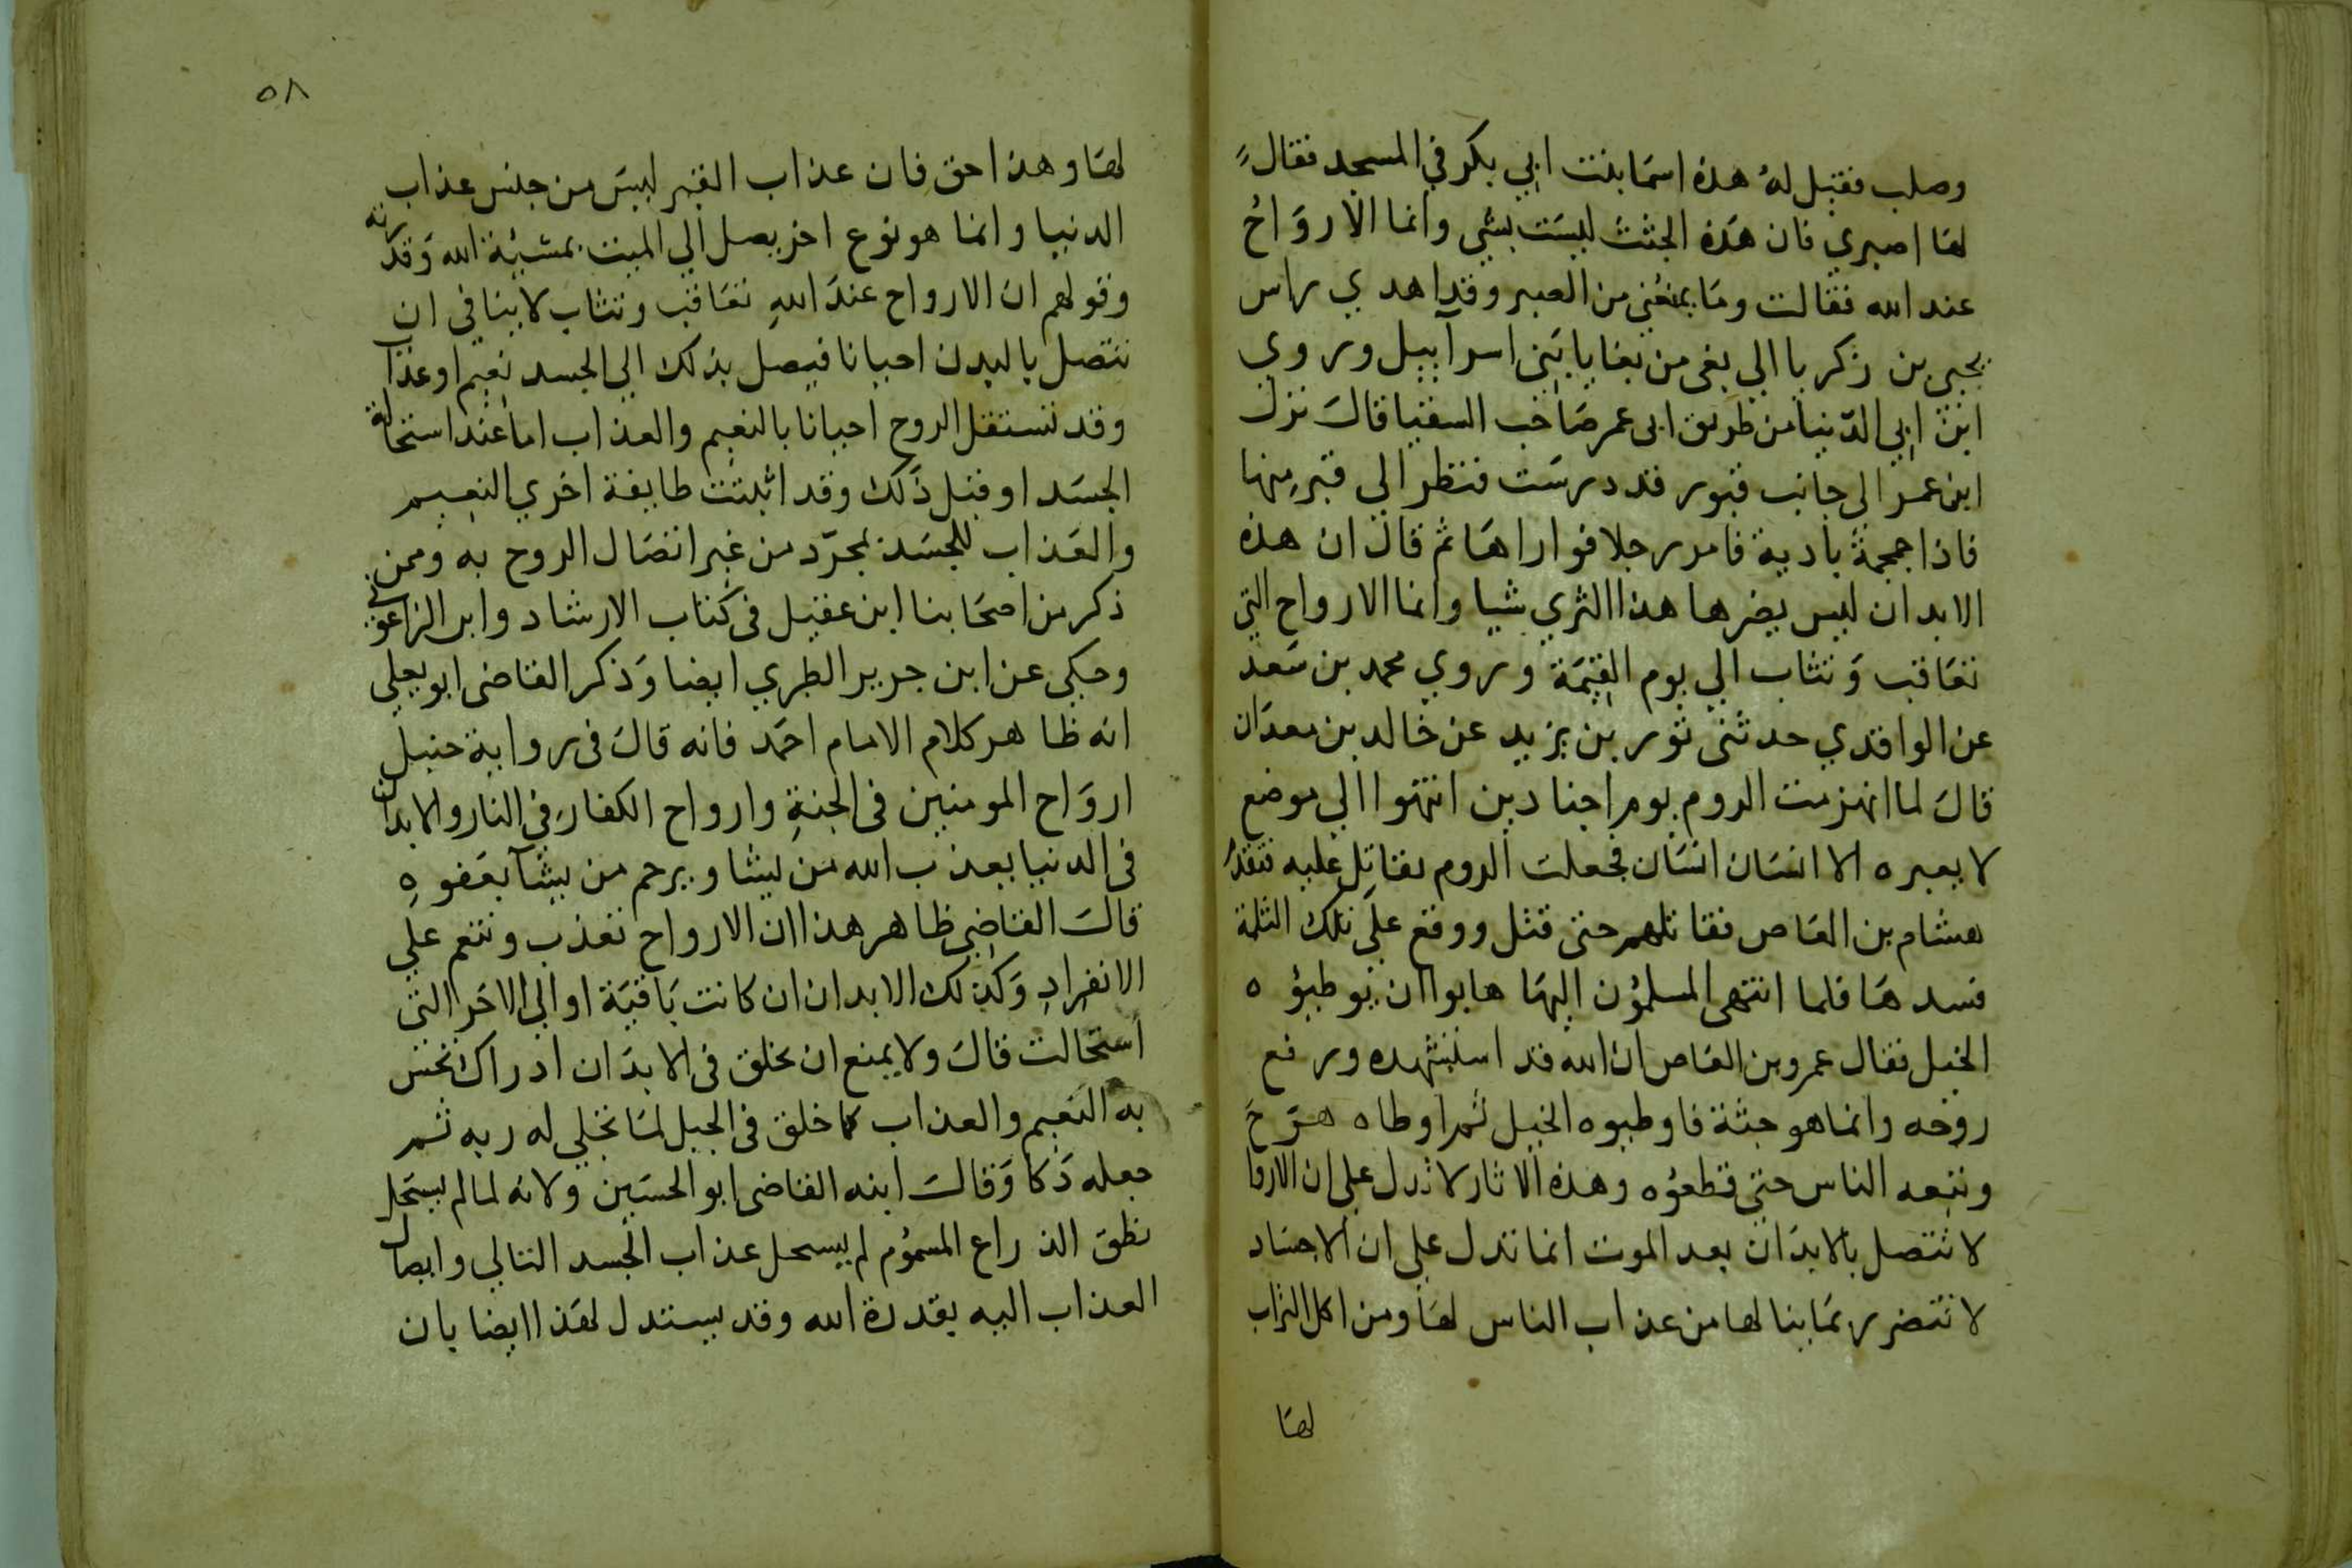 وصلب فقيل له هذه اسما بنت ابي بكر في المسجد فقال
لها اصبري فان هذه الجثث ليست بشي وانما الارواح
عند الله فقالت وما يمنعني من الصبر وقد اهدي راس
يحيى بن زكريا الي بغي من بغايا بني اسراييل وروي
ابن ابي الدنيا من طريق ابى عمر صاحب السقيا قال نزل
ابن عمر الى جانب قبور قد درست فنظر الي قبر منها
فاذا جمجمة بادية فامر رجلا فواراها ثم قال ان هذه
الابدان ليس يضرها هذا الثري شيا وانما الارواح التي
تعاقب وتثاب الي يوم القيمة وروي محمد بن سعد
عن الواقدي حدثني ثور بن يزيد عن خالد بن معدان
قال لما انهزمت الروم يوم اجنادين انتهوا الي موضع
لا يعبره الا انسان انسان فجعلت الروم تقاتل عليه فتقدم
هشام بن العاص فقاتلهم حتى قتل ووقع على تلك الثلمة
فسدها فلما انتهى المسلمون اليها هابوا ان يوطيوه
الخيل فقال عمرو بن العاص ان الله قد استشهده ورفع
روحه وانما هو جثة فاوطيوه الخيل ثم اوطاه هو
وتبعه الناس حتى قطعوه وهذه الاثار لا تدل على ان الاروا
لا تتصل بالابدان بعد الموت انما تدل علي ان الاجساد
لا تتضرر بما ينالها من عذاب الناس لها ومن اكل التراب
لها
٥٨
لها وهذا حق فان عذاب القبر ليس من جنس عذاب
الدنيا وانما هو نوع اخر يصل الي الميت بمشيئة الله وقدرته
وقولهم ان الارواح عند الله تعاقب وتثاب لا ينافي ان
تتصل بالبدن احيانا فيصل بذلك الي الجسد نعيم او عذاب
وقد تستقل الروح احيانا بالنعيم والعذاب اما عند استحالة
الجسد او قبل ذلك وقد اثبتت طايفة اخري النعيم
والعذاب للجسد بمجرد من غير اتصال الروح به وممن
ذكر من اصحابنا ابن عقيل في كتاب الارشاد وابن الزاغوني
وحكي عن ابن جرير الطبري ايضا وذكر القاضى ابو يعلي
انه ظاهر كلام الامام احمد فانه قال فى رواية حنبل
ارواح المومنين فى الجنة وارواح الكفار في النار والابدان
فى الدنيا يعذب الله من يشا ويرحم من يشآ بعفوه
قال القاضى ظاهر هذا ان الارواح تعذب وتنعم علي
الانفراد وكذلك الابدان ان كانت باقية او الي الاجزا التي
استحالت قال ولا يمنع ان يخلق فى الابدان ادراك تحس
به النعيم والعذاب كما خلق في الجبل لما تجلي له ربه ثم
جعله دكا وقال ابنه القاضى ابو الحسين ولانه لما لم يستحل
نطق الذراع المسموم لم يستحل عذاب الجسد التالي وايصال
العذاب اليه بقدرة الله وقد يستدل لهذا ايضا بان